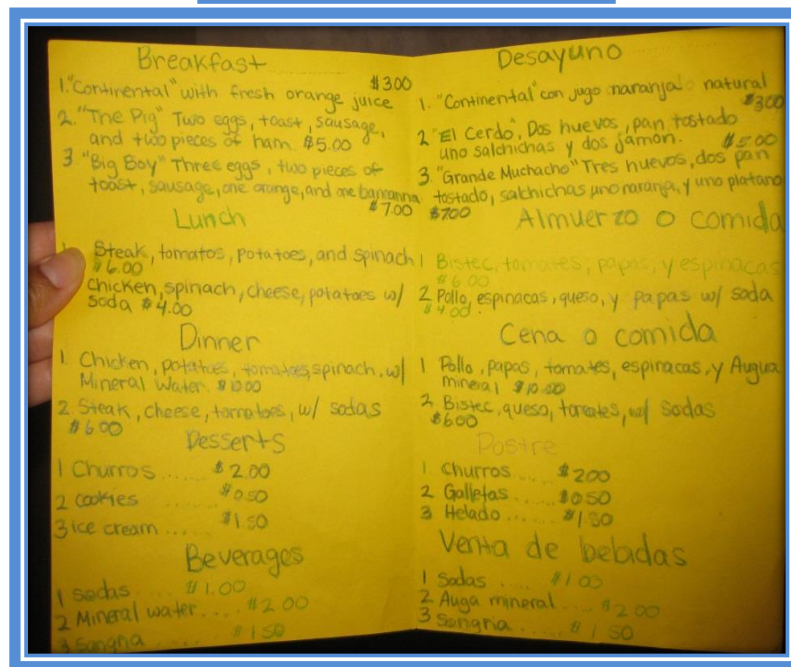 Breakfast
1. "Continental" with fresh orange juice $3.00
2. "The Pig" Two eggs, toast, sausage,
and two pieces of ham. $5.00
3 "Big Boy" Three eggs, two pieces of
toast, sausage, one orange, and one bananna
$7.00
Lunch
Steak, tomatos, potatoes, and spinach
$6.00
Chicken, spinach, cheese, potatoes w/
soda $4.00
Dinner
1. Chicken, potatoes, tomatoes, spinach, w/
Mineral Water. $10.00
2. Steak, cheese, tomatoes, w/ sodas
$6.00
Desserts
1 Churros ...... $2.00
2 cookies ...... $0.50
3 ice cream ..... $1.50
Beverages
1 sodas ..... $1.00
2 Mineral water .... $2.00
3 Sangria ..... $1.50
Desayuno
1. "Continental" con jugo naranjado natural
$3.00
2 "El Cerdo", Dos huevos, pan tostado
uno salchichas y dos jamón. $5.00
3. "Grande Muchacho" Tres huevos, dos pan
tostado, salchichas uno naranja, y uno platano
$7.00
Almuerzo o comida
1 Bistec, tomates, papas, y espinacas
$6.00
2 Pollo, espinacas, queso, y papas w/ soda
$4.00.
Cena o comida
1 Pollo, papas, tomates, espinacas, y Augua
mineral $10.00
2 Bistec, queso, tomates, w/ sodas
$6.00
Postre
1. Churros ..... $2.00
2 Galletas ..... $0.50
3 Helado ..... $1.50
Venta de bebidas
1 Sodas ..... $1.00
2 Auga mineral .... $2.00
3 Sangria ..... $1.50